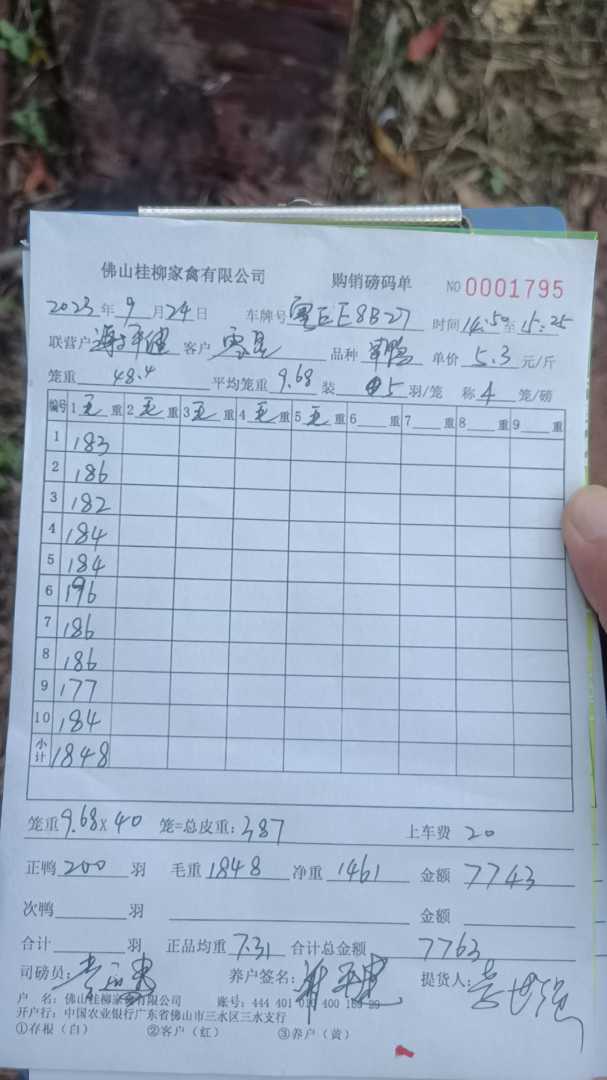 佛山桂柳家禽有限公司 购销磅码单 NO 0001795
2023年9月24日 车牌号 E8B27 时间14:50至15:25
联营户 客户 品种 单价 5.3 元/斤
笼重 48.4 平均笼重 9.68 装 5 羽/笼 称 4 笼/磅
编号 1 毛 重 2 毛 重 3 毛 重 4 毛 重 5 毛 重 6 重 7 重 8 重 9 重
1 183
2 186
3 182
4 184
5 184
6 196
7 186
8 186
9 177
10 184
小计 1848
笼重 9.68 x 40 笼=总皮重: 387 上车费 20
正鸭 200 羽 毛重 1848 净重 1461 金额 7743
次鸭 羽 金额
合计 羽 正品均重 7.31 合计总金额 7763
司磅员: 养户签名: 提货人:
户 名: 佛山桂柳家禽有限公司 账号: 444 401 010 400
开户行: 中国农业银行广东省佛山市三水区三水支行
①存根（白） ②客户（红） ③养户（黄）